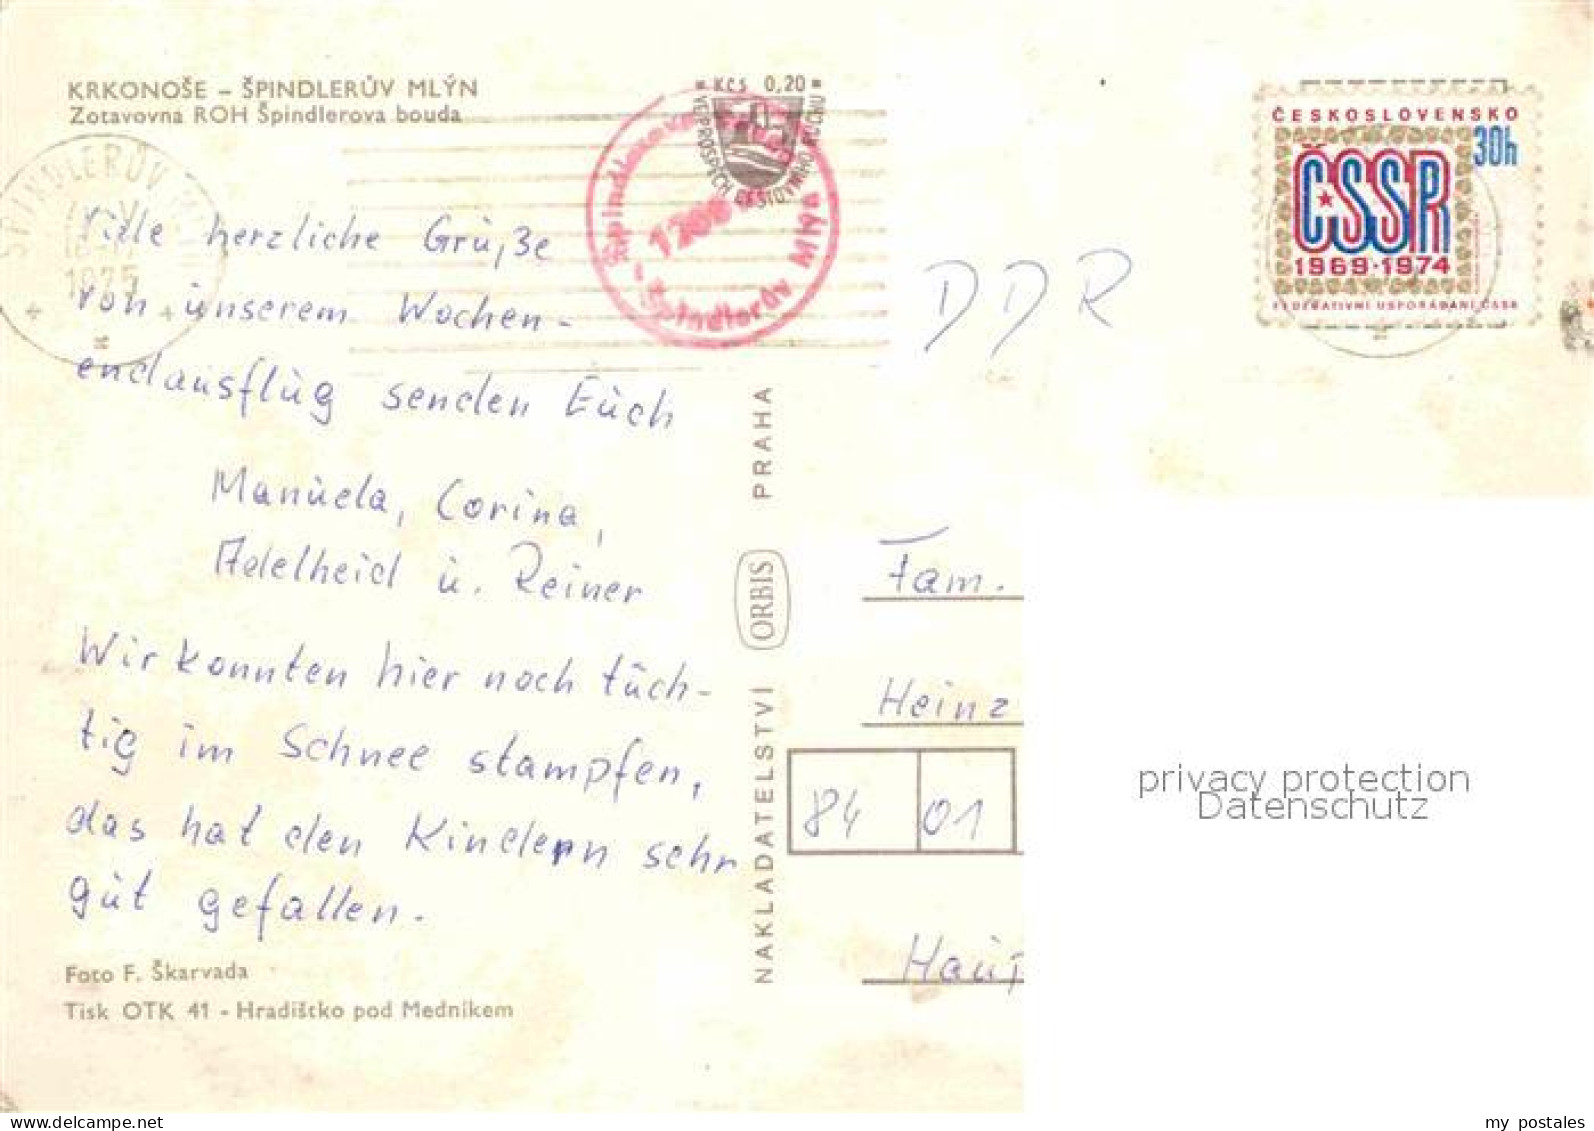 KRKONOŠE – ŠPINDLERŮV MLÝN
Zotavovna ROH Špindlerova bouda
KČS 0,20
VE PROSPĚCH CESTOVNÍHO RUCHU
Špindlerova
1208
- Špindlerův Mlýn
ŠPINDLERŮV
1975
ČESKOSLOVENSKO
30h
ČSSR
1969·1974
FEDERATIVNÍ USPOŘÁDÁNÍ ČSSR
DDR
Viele herzliche Grüße
von unserem Wochen-
endausflug senden Euch
Manuela, Corina,
Adelheid u. Reiner
Wir konnten hier noch tüch-
tig im Schnee stampfen,
das hat den Kindern sehr
gut gefallen.
Foto F. Škarvada
Tisk OTK 41 - Hradištko pod Medníkem
NAKLADATELSTVÍ ORBIS PRAHA
Fam.
Heinz
84 01
privacy protection
Datenschutz
my_postales